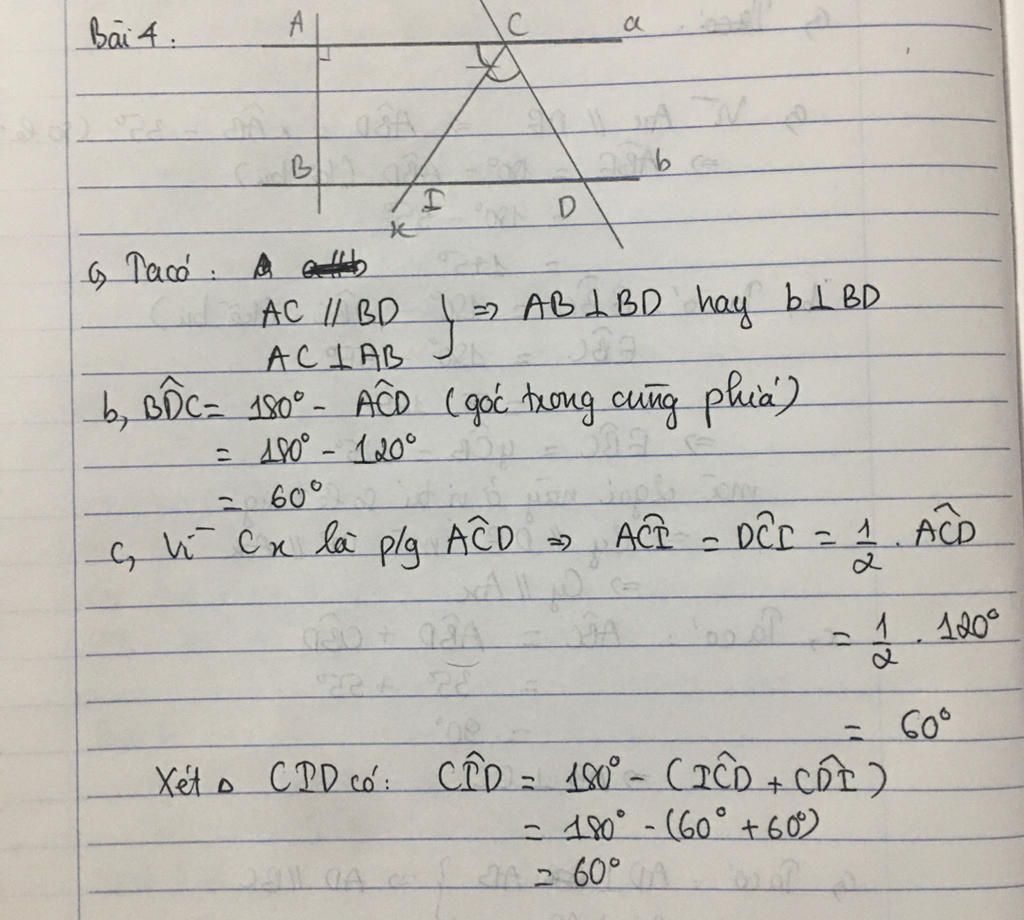 Bài 4:
A C a
B I D b
x
a, Ta có:
AC // BD } => AB ⊥ BD hay b ⊥ BD
AC ⊥ AB
b, BD̂C = 180° - AĈD (góc trong cùng phía)
= 180° - 120°
= 60°
c, Vì Cx là p/g AĈD => AĈI = DĈI = 1/2 . AĈD
= 1/2 . 120°
= 60°
Xét Δ CID có: CÎD = 180° - (IĈD + CD̂I)
= 180° - (60° + 60°)
= 60°